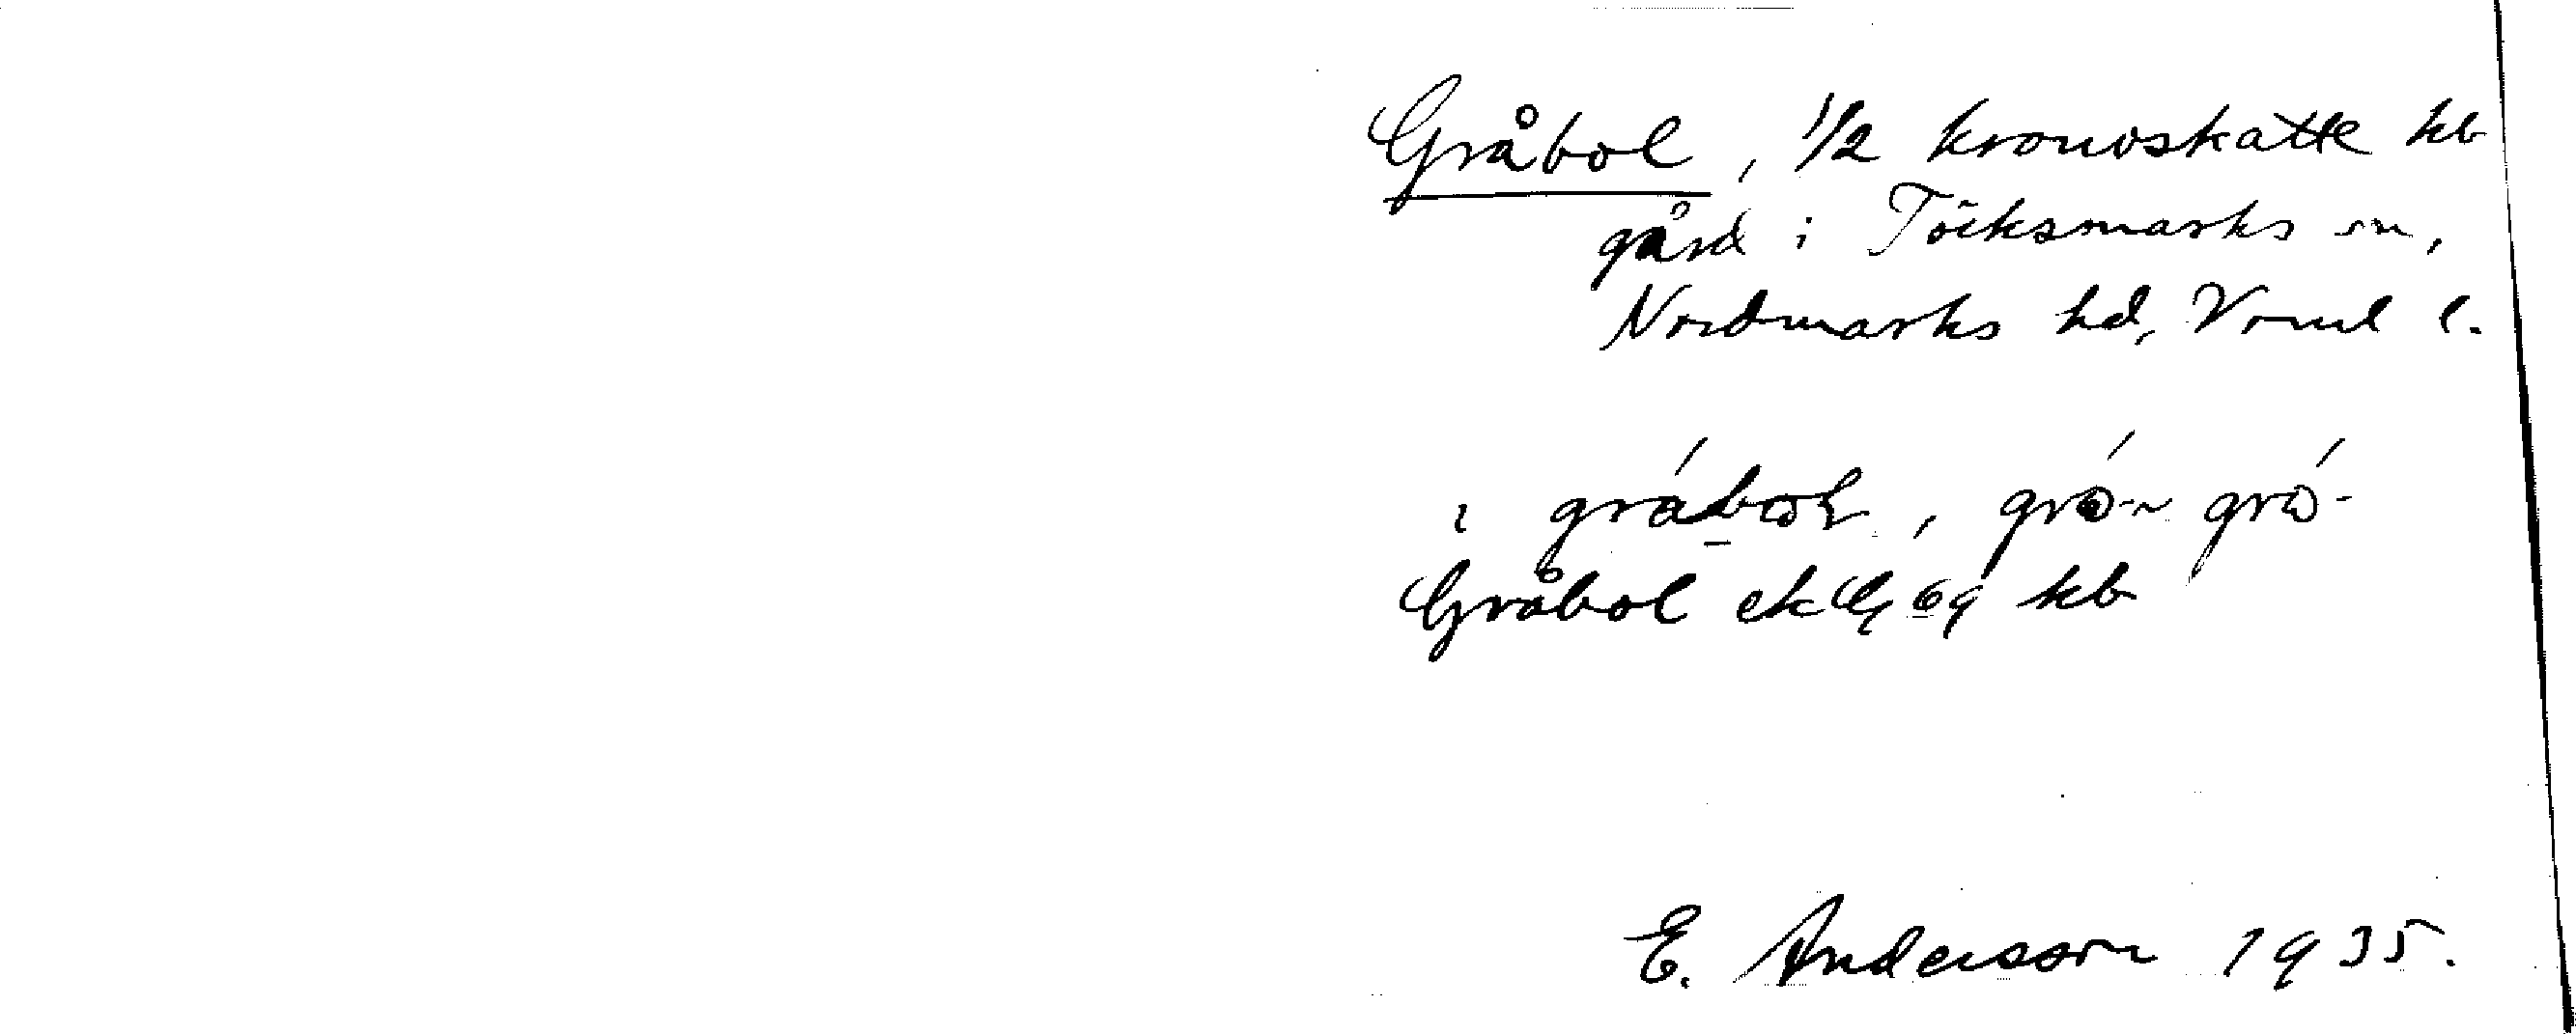 Gråbol, 1/2 kronoskatte hb
gård i Töcksmarks sn,
Nordmarks hd, Vrml l.
i
Gråbol ekG 69 kb
E. Andersson 1935.